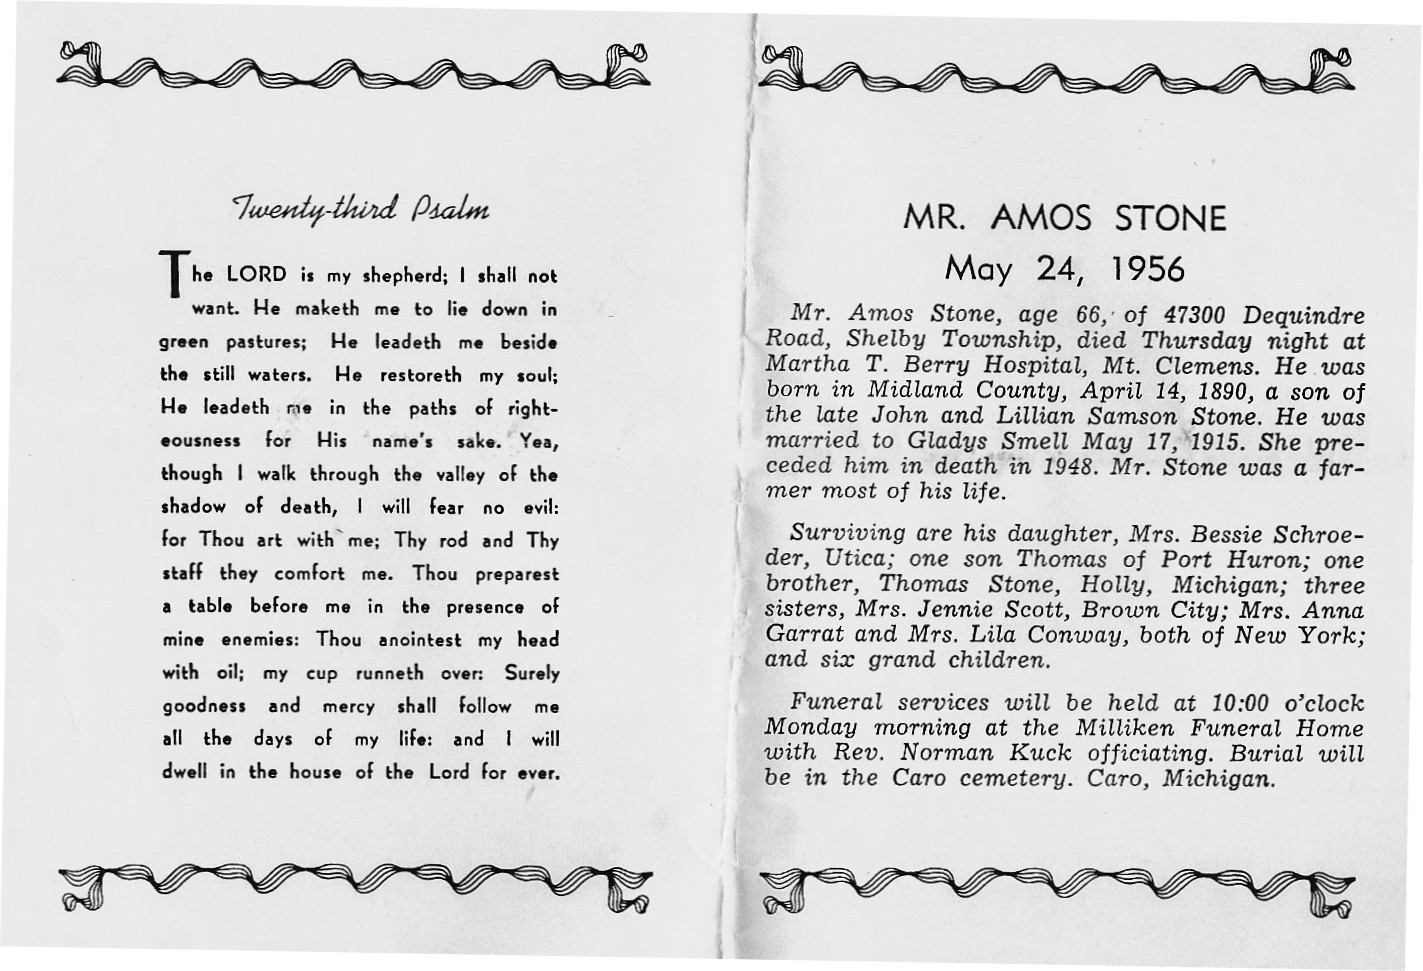 Twenty-third Psalm
The LORD is my shepherd; I shall not
want. He maketh me to lie down in
green pastures; He leadeth me beside
the still waters. He restoreth my soul;
He leadeth me in the paths of right-
eousness for His name's sake. Yea,
though I walk through the valley of the
shadow of death, I will fear no evil:
for Thou art with me; Thy rod and Thy
staff they comfort me. Thou preparest
a table before me in the presence of
mine enemies: Thou anointest my head
with oil; my cup runneth over: Surely
goodness and mercy shall follow me
all the days of my life: and I will
dwell in the house of the Lord for ever.
MR. AMOS STONE
May 24, 1956
Mr. Amos Stone, age 66, of 47300 Dequindre
Road, Shelby Township, died Thursday night at
Martha T. Berry Hospital, Mt. Clemens. He was
born in Midland County, April 14, 1890, a son of
the late John and Lillian Samson Stone. He was
married to Gladys Smell May 17, 1915. She pre-
ceded him in death in 1948. Mr. Stone was a far-
mer most of his life.
Surviving are his daughter, Mrs. Bessie Schroe-
der, Utica; one son Thomas of Port Huron; one
brother, Thomas Stone, Holly, Michigan; three
sisters, Mrs. Jennie Scott, Brown City; Mrs. Anna
Garrat and Mrs. Lila Conway, both of New York;
and six grand children.
Funeral services will be held at 10:00 o'clock
Monday morning at the Milliken Funeral Home
with Rev. Norman Kuck officiating. Burial will
be in the Caro cemetery. Caro, Michigan.